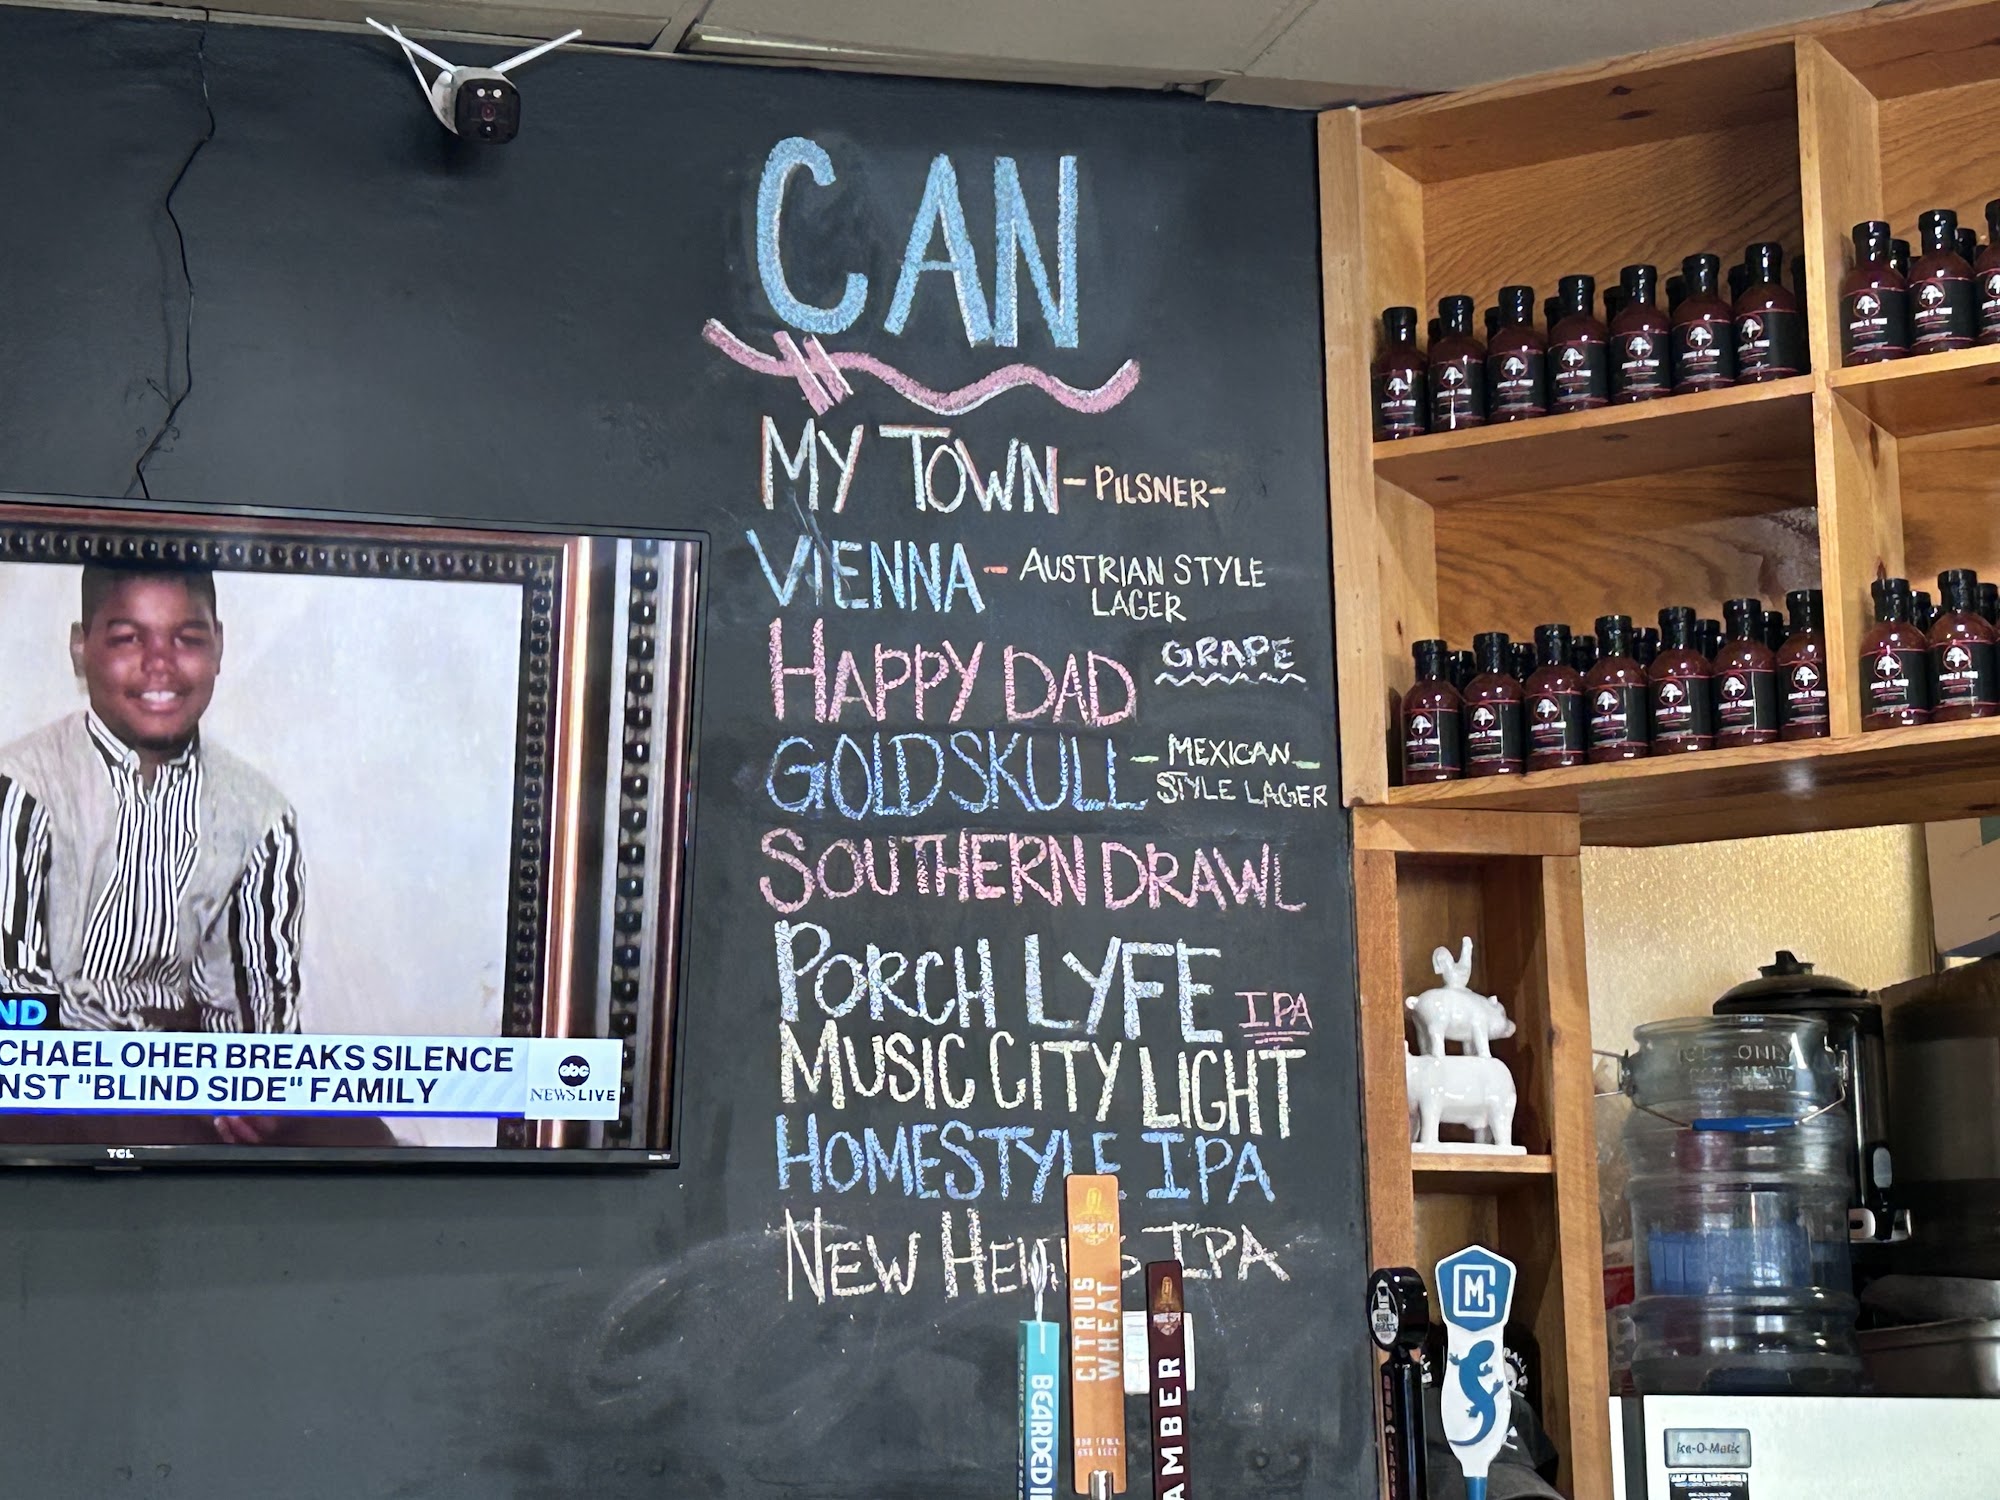 CAN
MY TOWN - PILSNER-
VIENNA - AUSTRIAN STYLE
LAGER
HAPPY DAD GRAPE
GOLD SKULL - MEXICAN -
STYLE LAGER
SOUTHERN DRAWL
PORCH LYFE IPA
MUSIC CITY LIGHT
HOMESTYLE IPA
NEW HEI S IPA
ND
CHAEL OHER BREAKS SILENCE
NST "BLIND SIDE" FAMILY
abc
NEWS LIVE
TCL
MUSIC CITY
CITRUS
WHEAT
BEARDED I
AMBER
MG
Ice-O-Matic